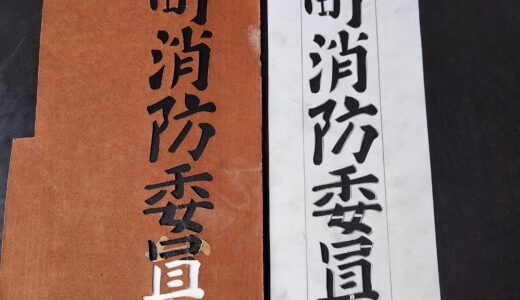 町消防委員
町消防委員